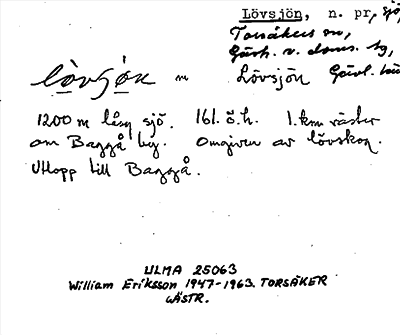 Lövsjön, n. pr, sjö,
Torsåkers sn,
Gävle v. doms. hg,
lövsjön m Lövsjön Gävl. län
1200 m lång sjö. 161. ö.h. 1.km väster
om Baggå by. Omgiven av lövskog.
Utlopp till Baggå.
ULMA 25063
William Eriksson 1947-1963. TORSÅKER
GÄSTR.